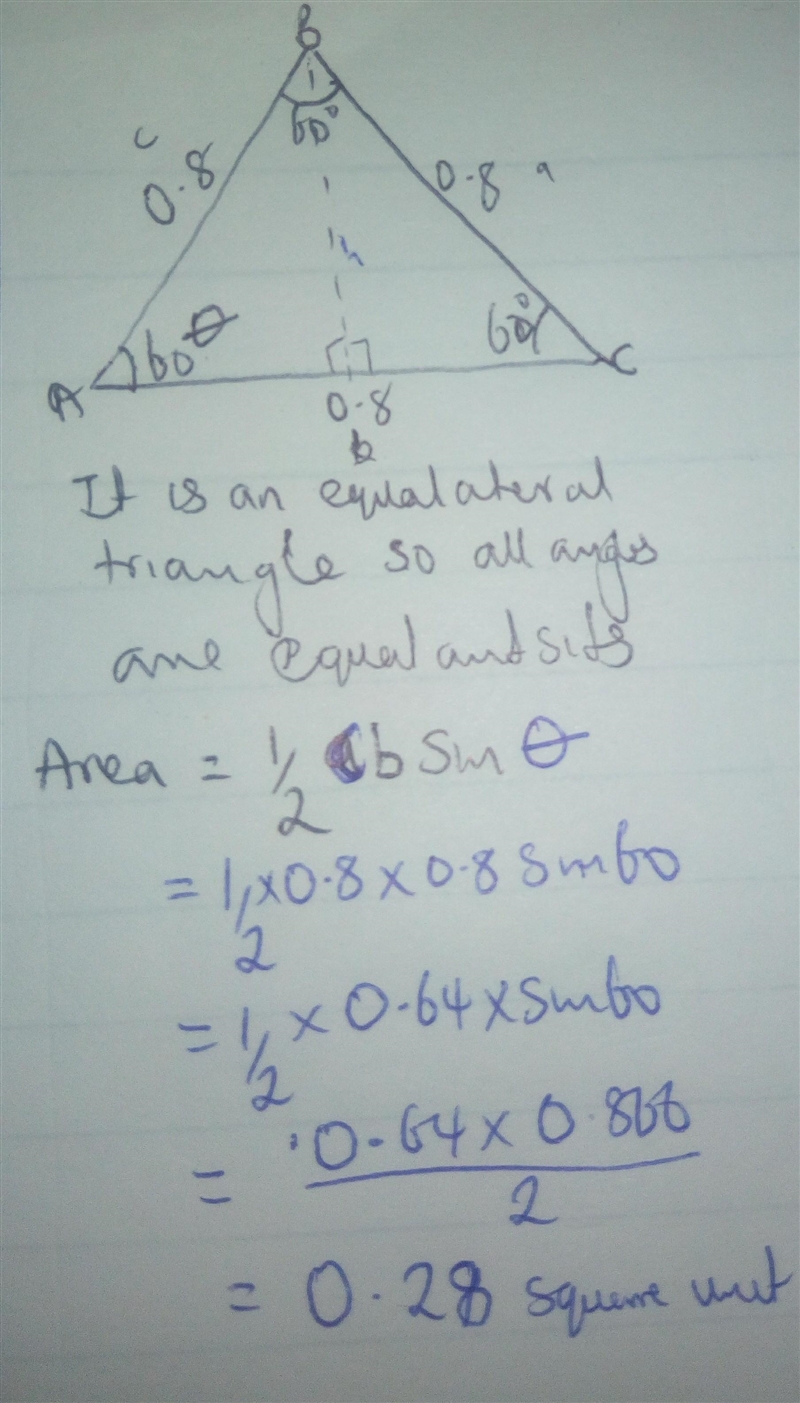 B
60°
c
0.8
0.8 a
h
60 θ
60°
A
C
0.8
b
It is an equalateral
triangle so all angles
are equal and sides
Area = 1/2 cb Sin θ
= 1/2 × 0.8 × 0.8 Sin60
= 1/2 × 0.64 × Sin60
= 0.64 × 0.866 / 2
= 0.28 square unit